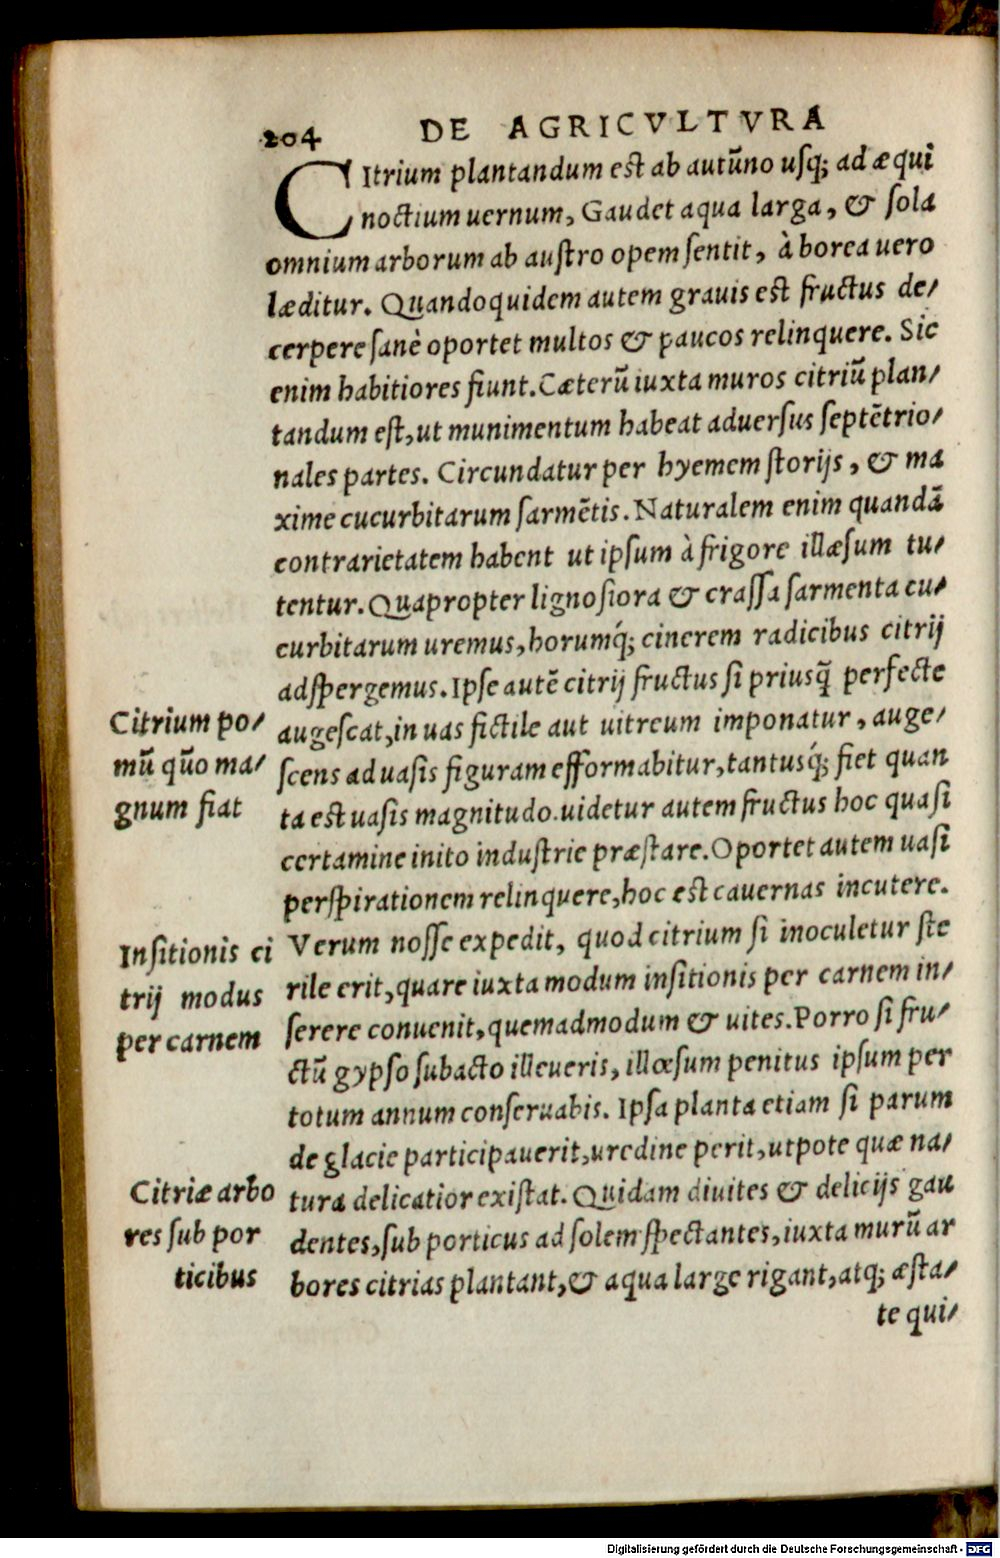 204 DE AGRICVLTVRA
CItrium plantandum est ab autũno usq; ad æqui
noctium uernum, Gaudet aqua larga, & sola
omnium arborum ab austro opem sentit, à borea uero
læditur. Quandoquidem autem grauis est fructus de/
cerpere sanè oportet multos & paucos relinquere. Sic
enim habitiores fiunt. Cæterũ iuxta muros citriũ plan/
tandum est, ut munimentum habeat aduersus septẽtrio/
nales partes. Circundatur per hyemem storijs, & ma
xime cucurbitarum sarmẽtis. Naturalem enim quandã
contrarietatem habent ut ipsum à frigore illæsum tu/
tentur. Quapropter lignosiora & crassa sarmenta cu/
curbitarum uremus, horumq́; cinerem radicibus citrij
adspergemus. Ipse autẽ citrij fructus si priusq̃ perfecte
Citrium po/
mũ quõ ma/
gnum fiat
augescat, in uas fictile aut uitreum imponatur, auge/
scens ad uasis figuram efformabitur, tantusq́; fiet quan
ta est uasis magnitudo. uidetur autem fructus hoc quasi
certamine inito industrie præstare. Oportet autem uasi
perspirationem relinquere, hoc est cauernas incutere.
Insitionis ci
trij modus
per carnem
Verum nosse expedit, quod citrium si inoculetur ste
rile erit, quare iuxta modum insitionis per carnem in/
serere conuenit, quemadmodum & uites. Porro si fru/
ctũ gypso subacto illeueris, illœsum penitus ipsum per
totum annum conseruabis. Ipsa planta etiam si parum
de glacie participauerit, uredine perit, utpote quæ na/
Citriæ arbo
res sub por
ticibus
tura delicatior existat. Quidam diuites & delicijs gau
dentes, sub porticus ad solem spectantes, iuxta murũ ar
bores citrias plantant, & aqua large rigant, atq; æsta/
te qui/
Digitalisierung gefördert durch die Deutsche Forschungsgemeinschaft - DFG